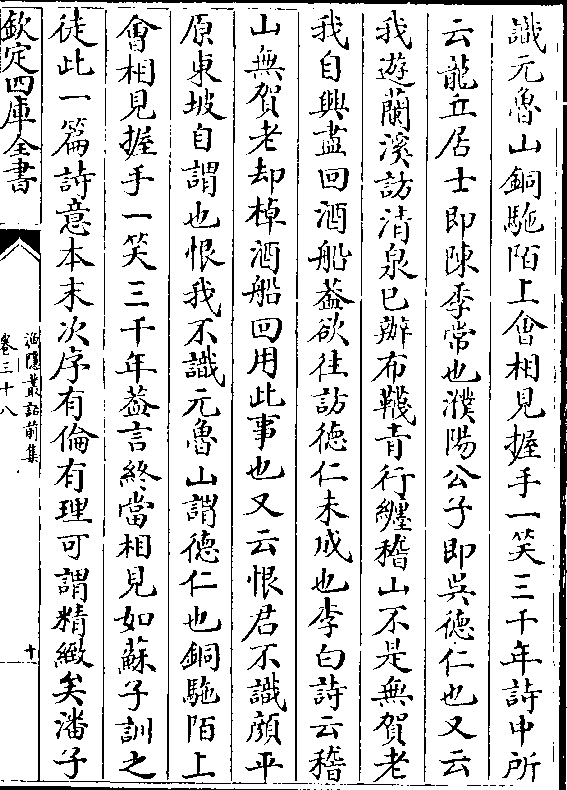 識元魯山銅駞陌上會相見握手一笑三千年詩中所
云龍丘居士即陳季常也濮陽公子即吳德仁也又云
我遊蘭溪訪清泉已辦布韈青行纏稽山不是無賀老
我自興盡回酒船葢欲往訪德仁未成也李白詩云稽
山無賀老却棹酒船回用此事也又云恨君不識顔平
原東坡自謂也恨我不識元魯山謂德仁也銅駞陌上
會相見握手一笑三千年葢言終當相見如蘇子訓之
徒此一篇詩意本末次序有倫有理可謂精緻矣潘子
欽定四庫全書
漁隱叢話前集
卷三十八
十